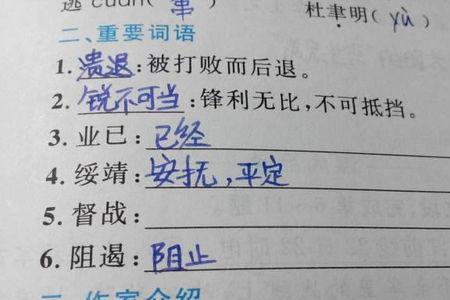 窜 cuàn( 窜 ) 杜聿明( yù )
二、重要词语
1. 溃退:被打败而后退。
2. 锐不可当:锋利无比,不可抵挡。
3. 业已:已经
4. 绥靖:安抚,平定
5. 督战:
6. 阻遏:阻止
作家介绍